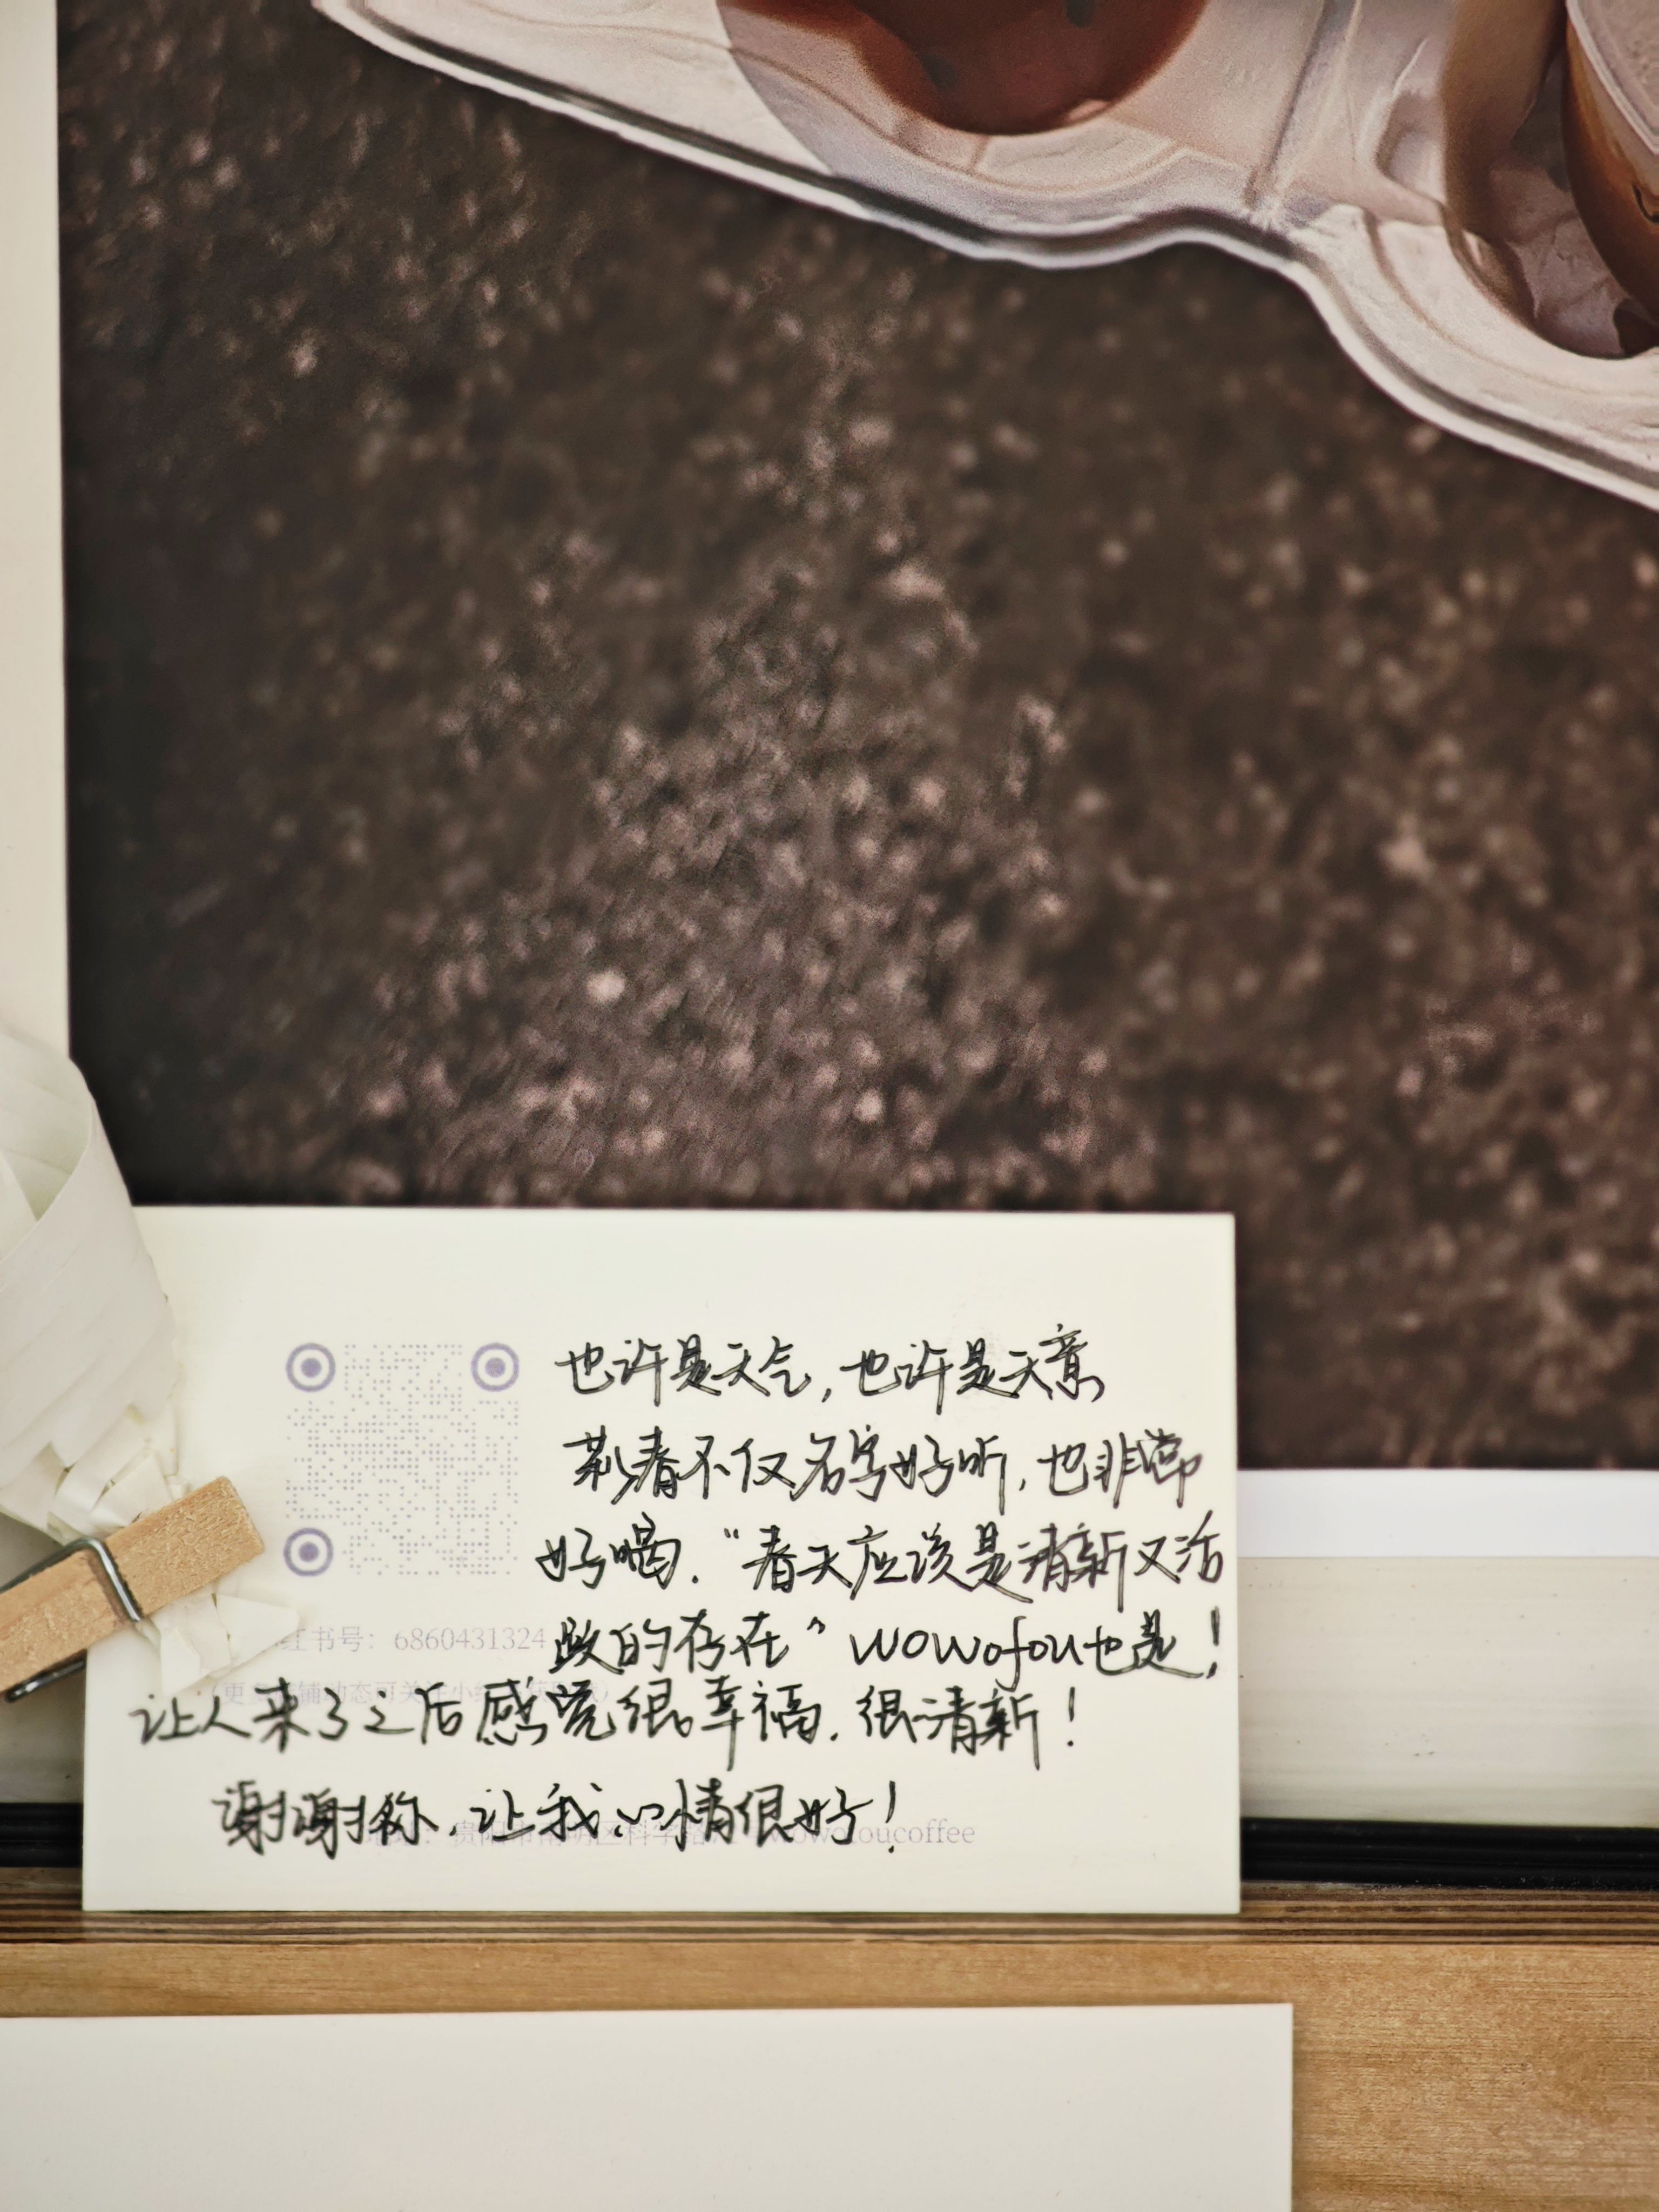 也许是天气,也许是天意
春不仅名字好听,也非常
好喝."春天应该是清新又活
跃的存在" wowofou也是!
红书号: 6860431324
让人来了之后感觉很幸福.很清新!
谢谢你.让我心情很好!
wowofoucoffee